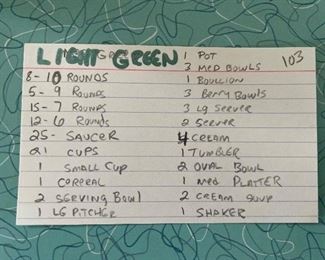 LIGHT GREEN
103
8 - 10 ROUNDS
5 - 9 ROUNDS
15 - 7 ROUNDS
12 - 6 ROUNDS
25 - SAUCER
21 CUPS
1 SMALL CUP
1 CEREAL
2 SERVING BOWL
1 LG PITCHER
1 POT
3 MED BOWLS
1 BOULLION
3 BERRY BOWLS
3 LG SERVER
2 SERVER
4 CREAM
1 TUMBLER
2 OVAL BOWL
1 MED PLATTER
2 CREAM SOUP
1 SHAKER